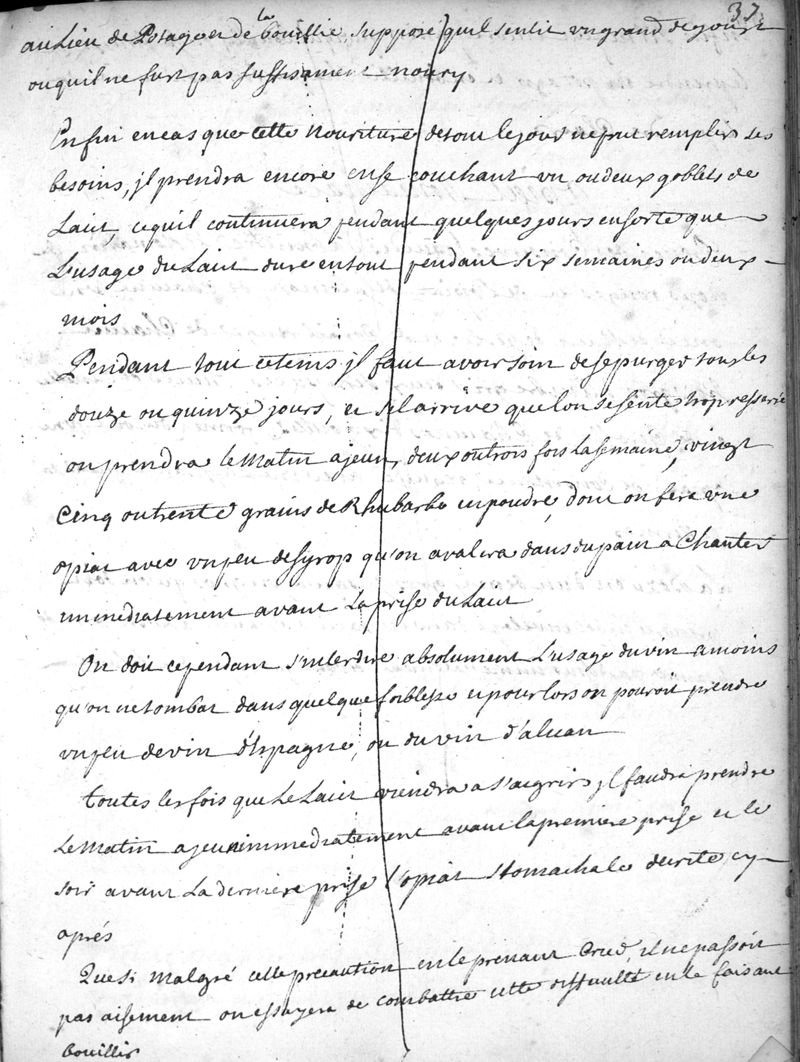 37
au Lieu de Potage et de la bouillie supposé qu'il sentit un grand degoust
ou qu'il ne fust pas suffisament noury
Enfin en cas que cette nouriture de tout le jour ne put remplir ses
besoins, jl prendra encore en se couchant un ou deux goblets de
Lait, ce qu'il continuera pendant quelques jours en sorte que
L'usage du Lait dure en tout pendant six semaines ou deux
mois
Pendant tout ce tems jl faut avoir soin de se purger tous les
douze ou quinze jours, et s'il arrive que lon se sente trop resserré
on prendra le Matin a jeun, deux ou trois fois la semaine, vingt
Cinq ou trente grains de Rhubarbe en poudre, dont on fera une
opiat avec un peu de syrop qu'on avalera dans du pain a Chanter
immediatement avant La prise du Lait
On doit cependant s'interdire absolument L'usage du vin a moins
qu'on ne tombat dans quelque foiblesse et pour lors on pouroit prendre
un peu de vin d'Espagne, ou du vin d'alican
toutes les fois que Le Lait viendra a s'aigrir, jl faudra prendre
Le Matin a jeun immediatement avant la premiere prise et le
soir avant La derniere prise l'opiat stomachale decrite cy
aprés
Que si malgré cette precaution en le prenant Crud, il ne passoit
pas aisement on essayera de combattre cette difficulté en le faisant
bouillir